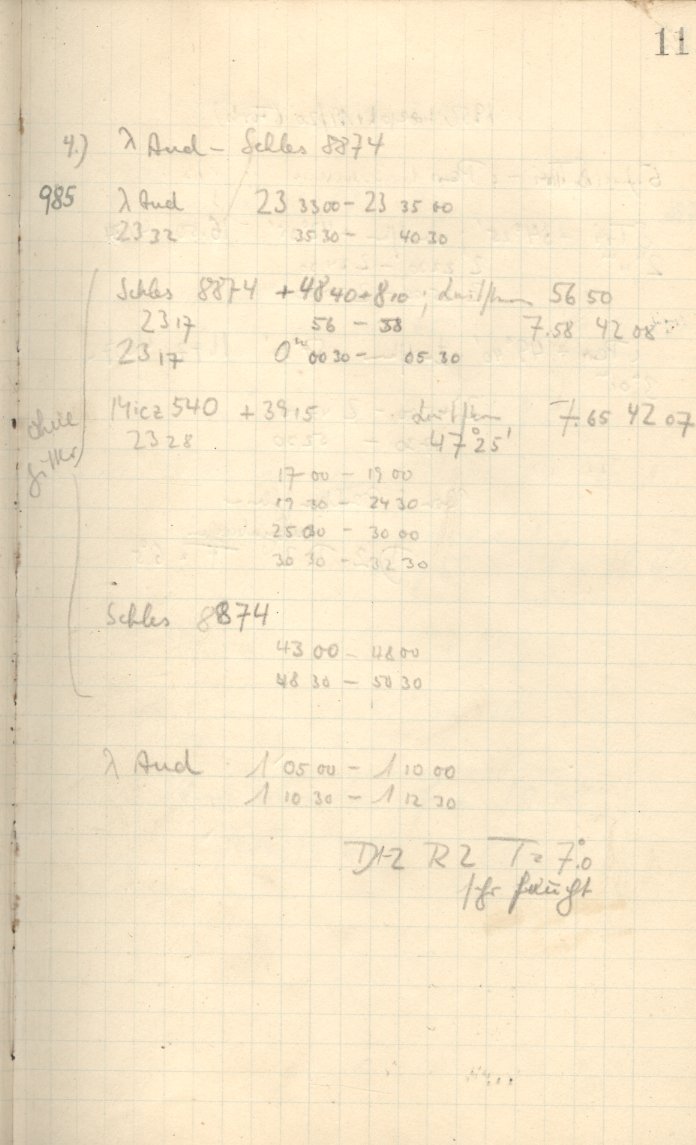 11
4.) λ And - Schles 8874
985 λ And 23 33 00 - 23 35 00
23 32 35 30 - 40 30
Schles 8874 + 48 40 + 8 10 ; 56 50
23 17 56 - 58 7.58 42 08
23 17 0 00 30 - 05 30
Micz 540 + 39 15 7.65 42 07
23 28 47° 25'
ohne
17 00 - 19 00
19 30 - 24 30
25 00 - 30 00
30 30 - 32 30
Schles 8874
43 00 - 48 00
48 30 - 50 30
λ And 1 05 00 - 1 10 00
1 10 30 - 1 12 30
D1-2 R 2 T = 7°.0
sehr feucht